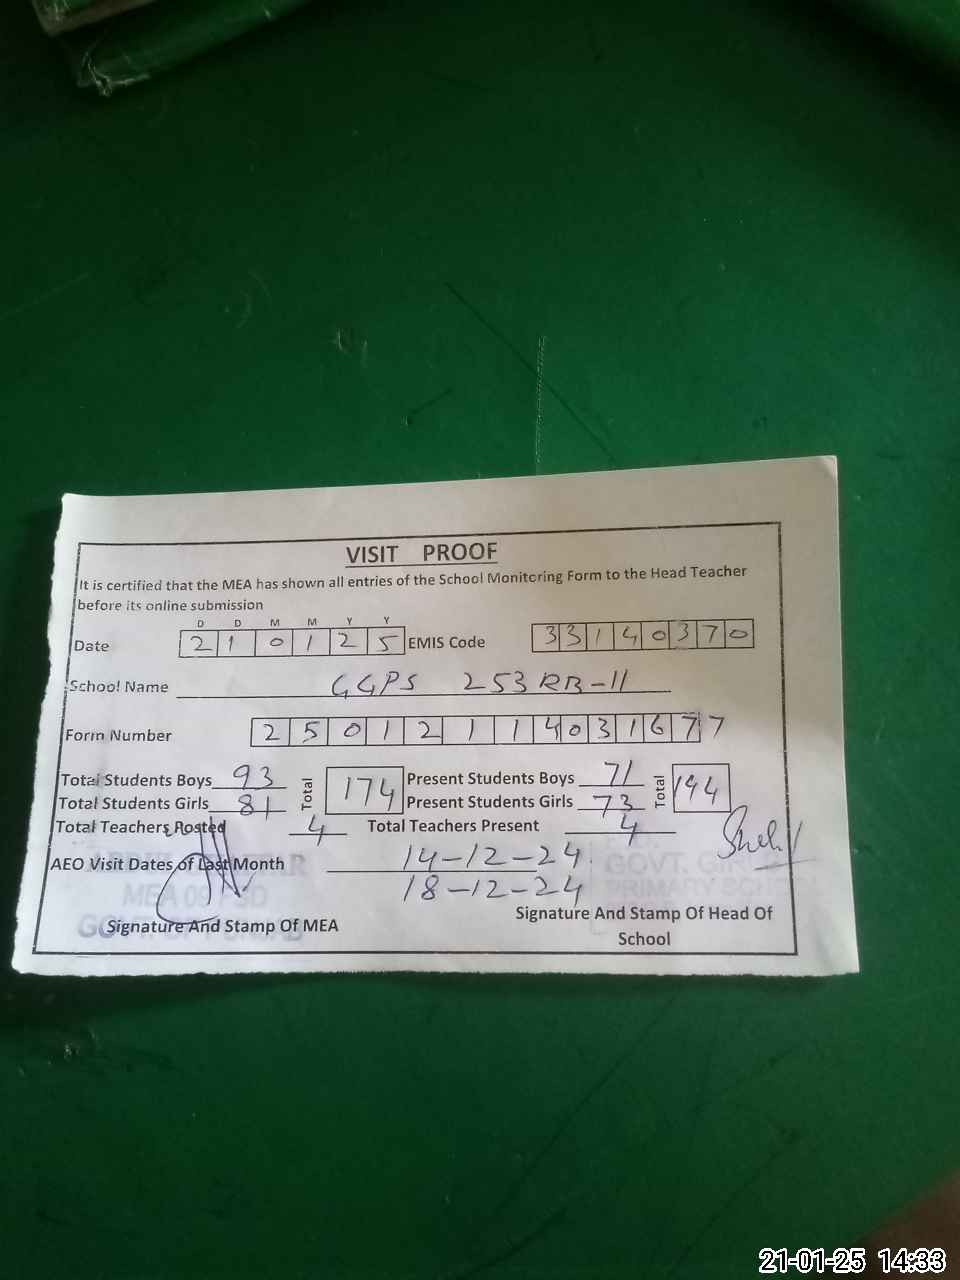 VISIT PROOF
It is certified that the MEA has shown all entries of the School Monitoring Form to the Head Teacher
before its online submission
D D M M Y Y
Date 2 1 0 1 2 5 EMIS Code 3 3 1 4 0 3 7 0
School Name GGPS 253 RB-II
Form Number 2 5 0 1 2 1 1 4 0 3 1 6 7 7
Total Students Boys 93 Total 174 Present Students Boys 71 Total 144
Total Students Girls 81 Present Students Girls 73
Total Teachers Posted 4 Total Teachers Present 4
AEO Visit Dates of Last Month 14-12-24
18-12-24
GOVT. GIRLS
PRIMARY SCHOOL
MEA 09 FSD
Signature And Stamp Of MEA
Signature And Stamp Of Head Of
School
21-01-25 14:33